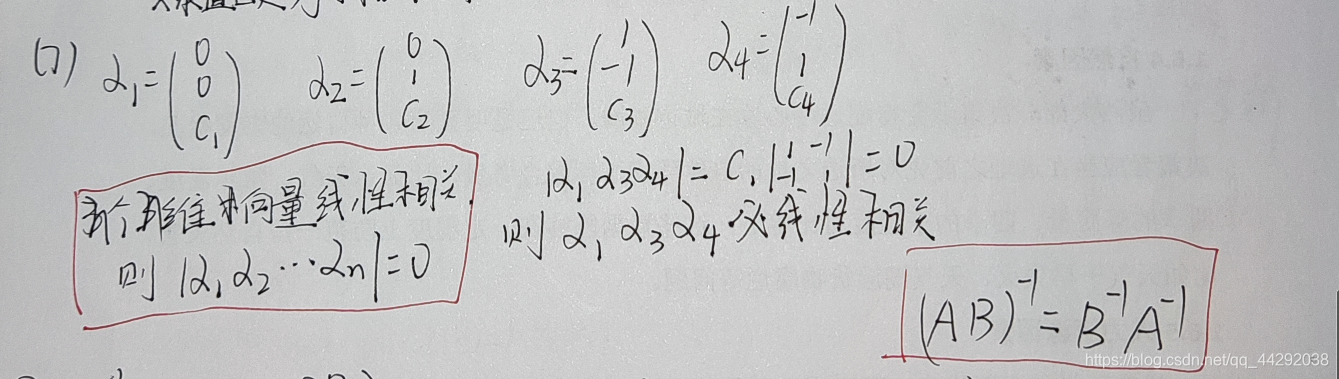 (7) α₁=(0 0 C₁) α₂=(0 1 C₂) α₃=(1 -1 C₃) α₄=(-1 1 C₄)
|α₁ α₃α₄|=C₁|1 -1 -1 1|=0
则α₁α₃α₄必线性相关
维向量线性相关.
则|α₁α₂…αn|=0
(AB)⁻¹=B⁻¹A⁻¹
https://blog.csdn.net/qq_44292038